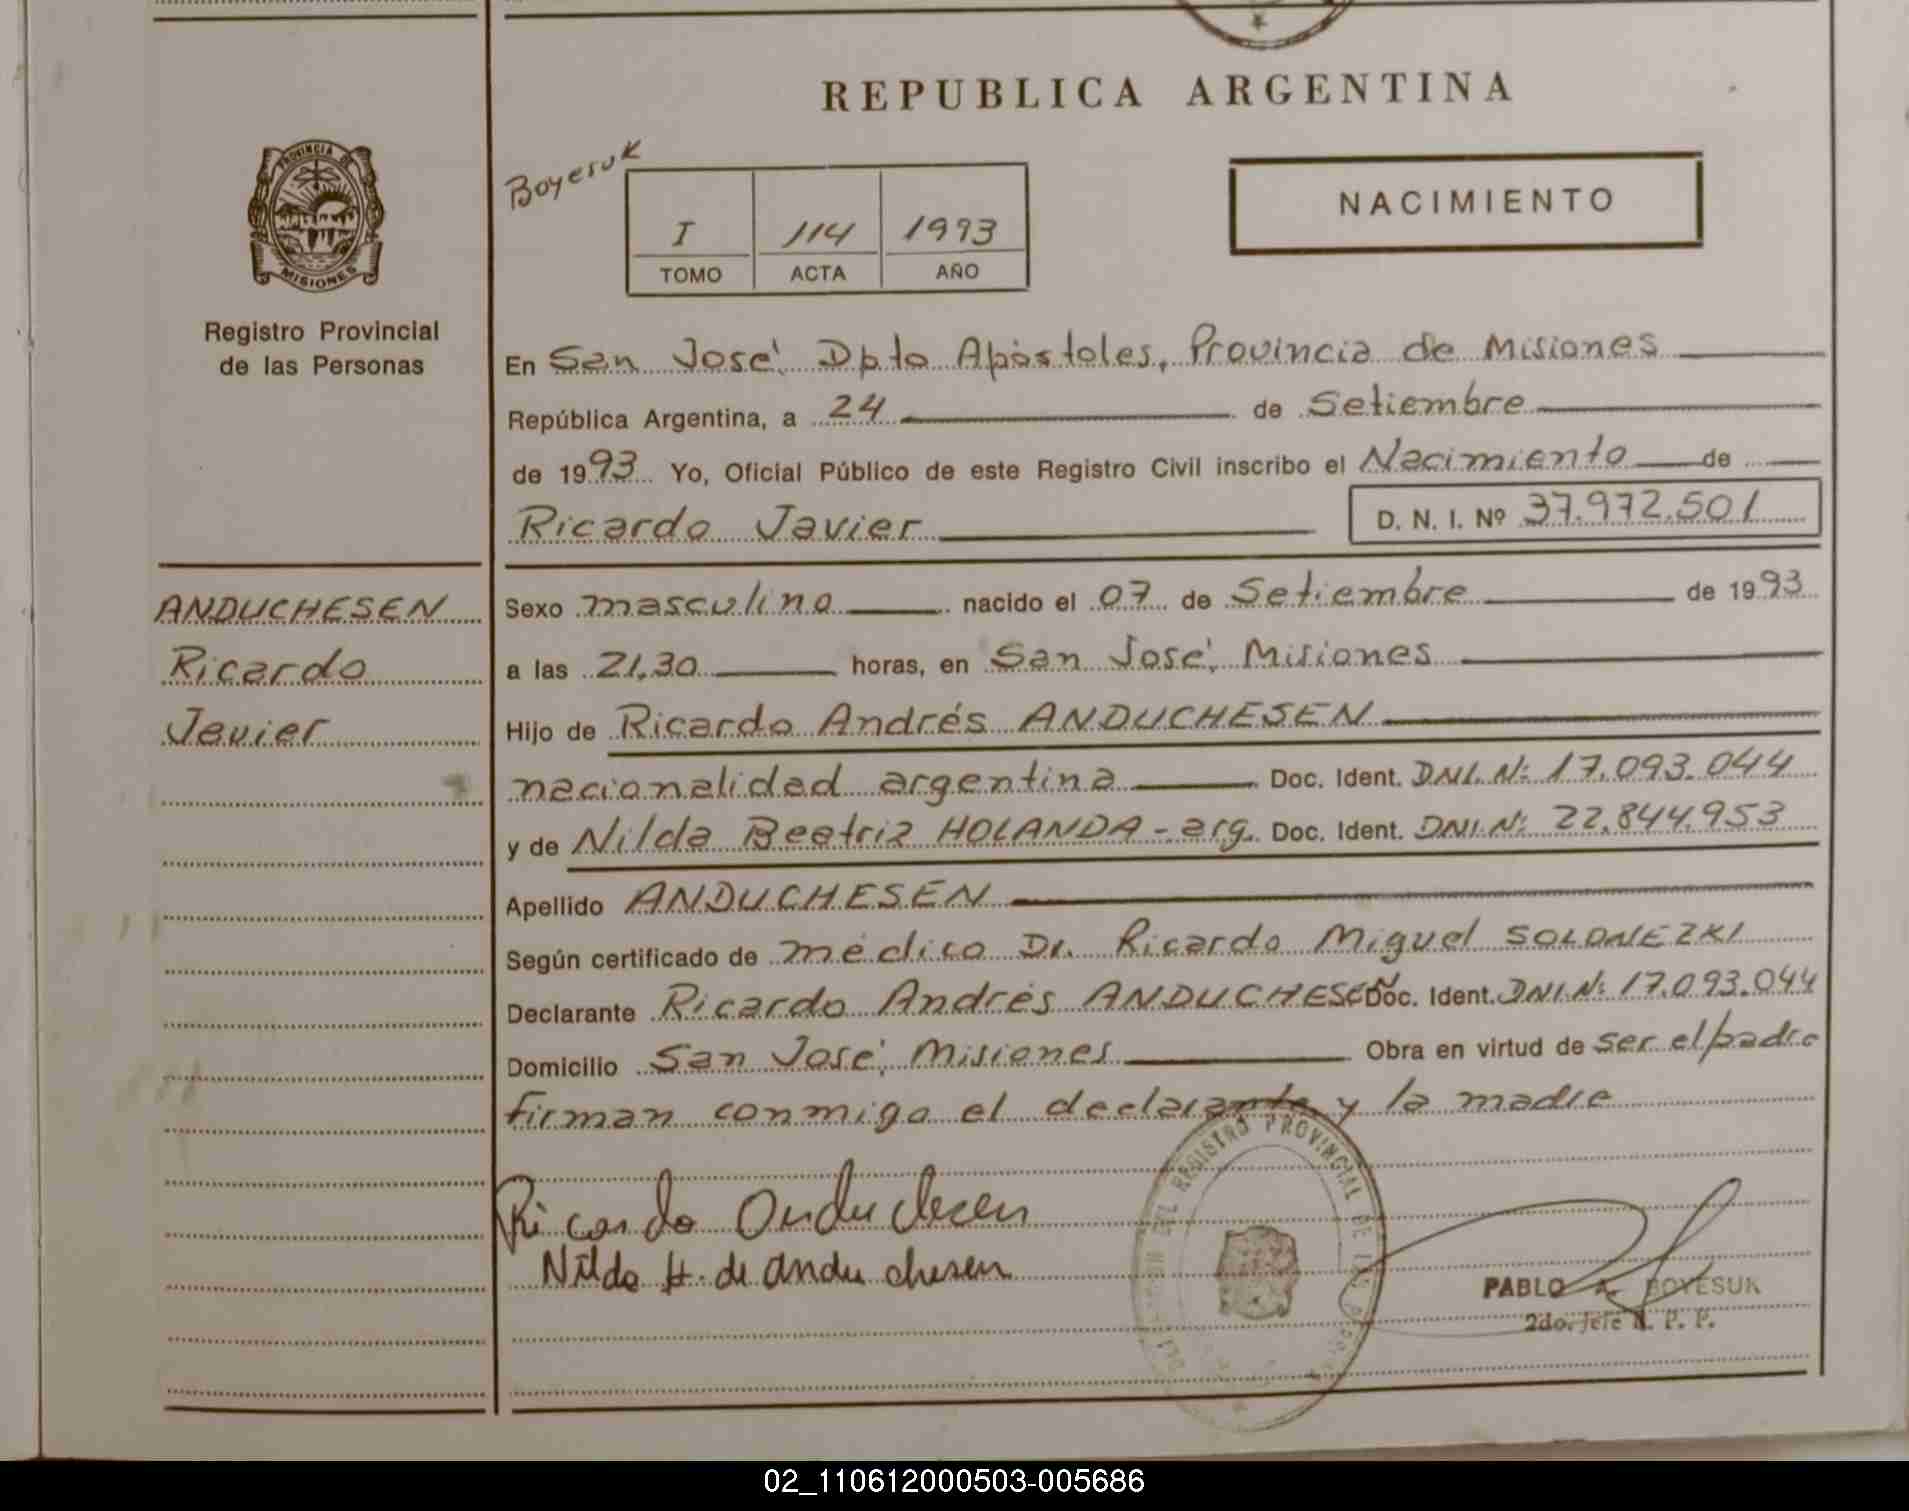 REPUBLICA ARGENTINA
PROVINCIA DE
MISIONES
Registro Provincial
de las Personas
Boyesuk
I 114 1993
TOMO ACTA AÑO
NACIMIENTO
En San José Dpto Apóstoles, Provincia de Misiones
República Argentina, a 24 de Setiembre
de 1993 Yo, Oficial Público de este Registro Civil inscribo el Nacimiento de
Ricardo Javier D. N. I. Nº 37.972.501
ANDUCHESEN
Ricardo
Javier
Sexo masculino nacido el 07 de Setiembre de 1993
a las 21,30 horas, en San José, Misiones
Hijo de Ricardo Andrés ANDUCHESEN
nacionalidad argentina Doc. Ident. DNI. Nº: 17.093.044
y de Nilda Beatriz HOLANDA - arg. Doc. Ident. DNI. Nº: 22.844.953
Apellido ANDUCHESEN
Según certificado de médico Dr. Ricardo Miguel SOLONEZKI
Declarante Ricardo Andrés ANDUCHESEN Doc. Ident. DNI. Nº: 17.093.044
Domicilio San José, Misiones Obra en virtud de ser el padre
firman conmigo el declarante y la madre
Ricardo Anduchesen
Nilda H. de Anduchesen
REGISTRO PROVINCIAL DE LAS
PABLO A. BOYESUK
2do. Jefe R. P. P.
02_110612000503-005686